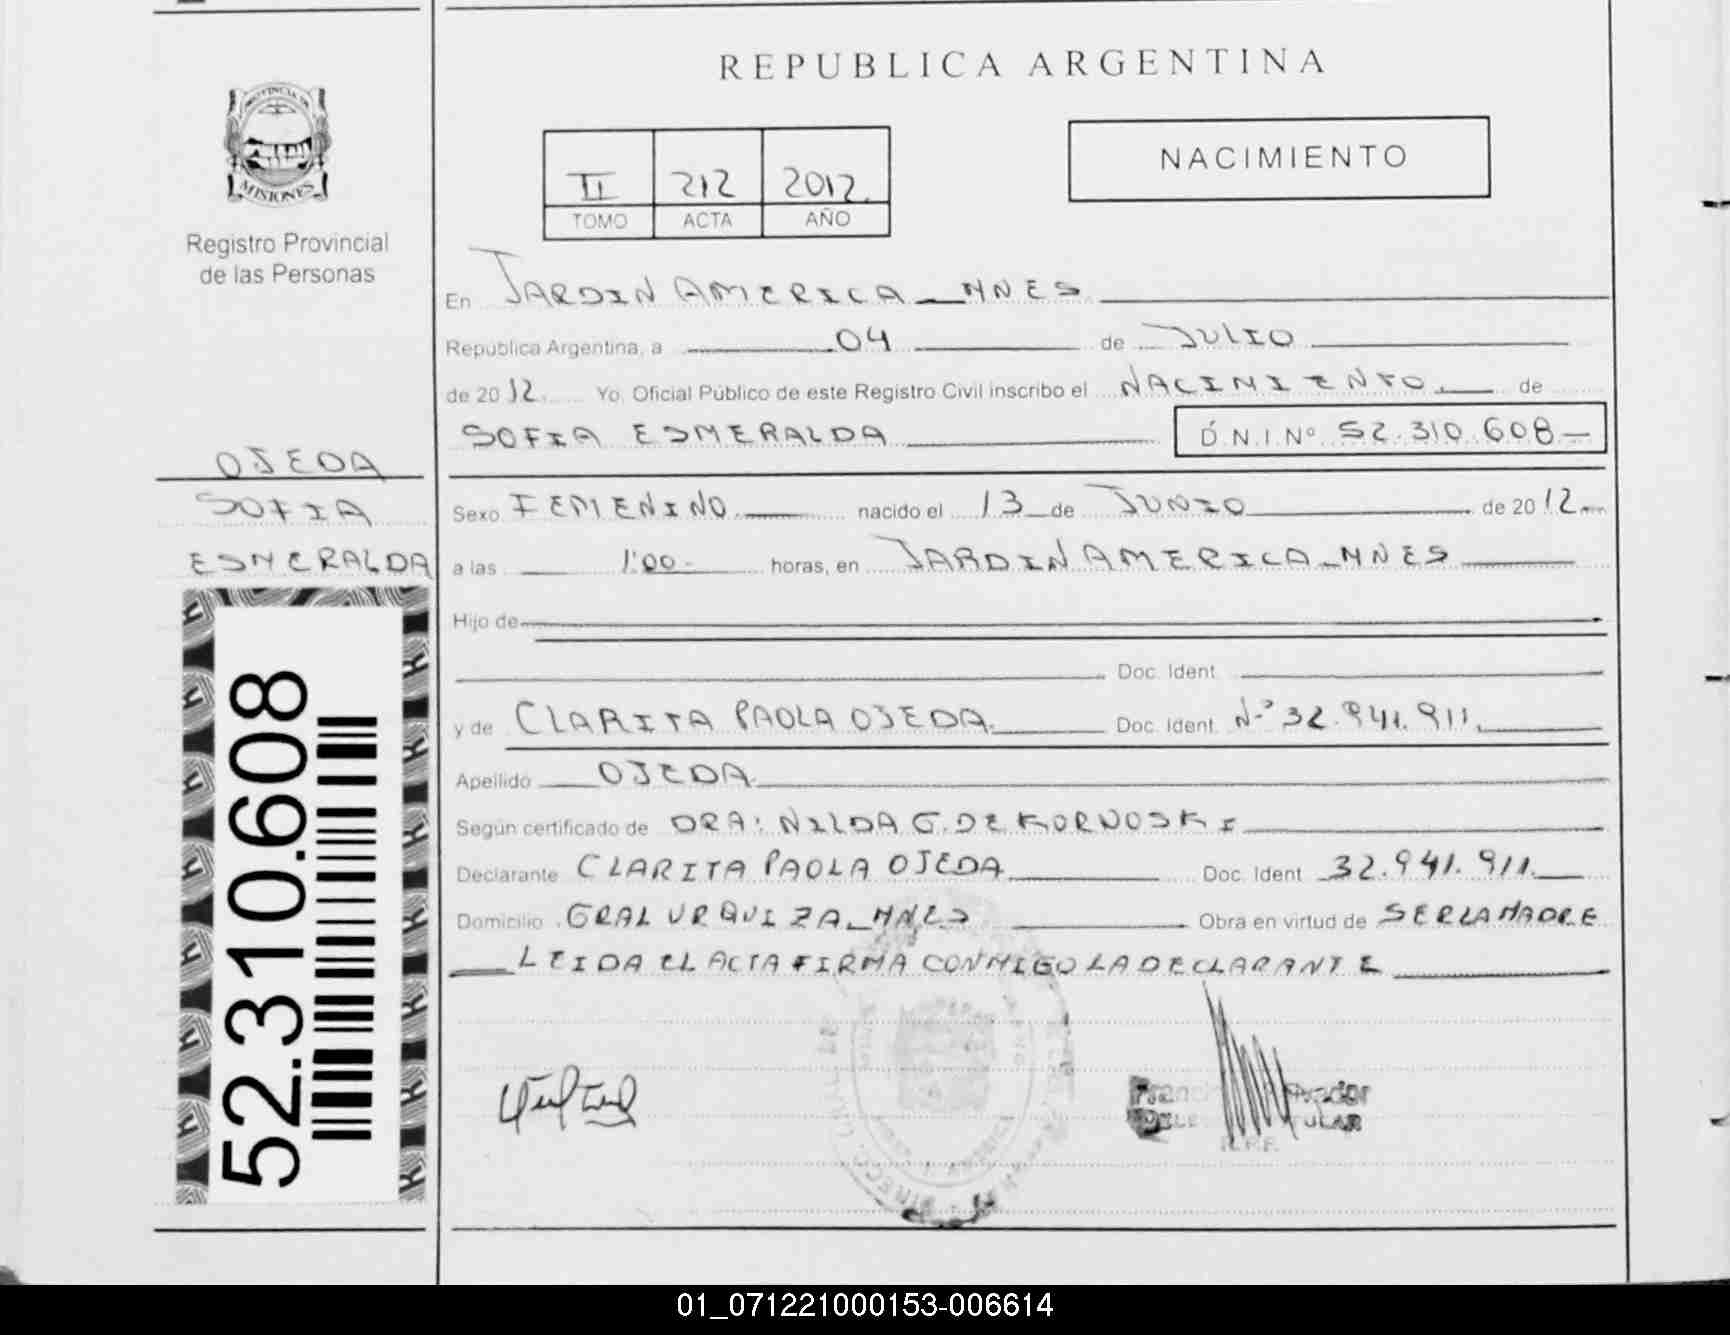 REPUBLICA ARGENTINA
PROVINCIA DE
MISIONES
Registro Provincial
de las Personas
NACIMIENTO
II 212 2012.
TOMO ACTA AÑO
En JARDIN AMERICA _ MNES
Republica Argentina, a 04 de JULIO
de 2012. Yo, Oficial Público de este Registro Civil inscribo el NACIMIENTO. de
SOFIA ESMERALDA D.N.I Nº 52.310.608-
OJEDA
SOFIA
ESMERALDA
52.310.608
Sexo FEMENINO. nacido el 13 de JUNIO de 2012
a las 1:00- horas, en JARDIN AMERICA _ MNES
Hijo de
Doc. Ident.
y de CLARITA PAOLA OJEDA. Doc. Ident. Nº 32.941.911.
Apellido OJEDA
Según certificado de DRA: NILDA G. DE KORNOSKI
Declarante CLARITA PAOLA OJEDA Doc. Ident. 32.941.911.
Domicilio GRAL URQUIZA _ MNES Obra en virtud de SER LA MADRE
LEIDA EL ACTA FIRMA CONMIGO LA DECLARANTE
01_071221000153-006614